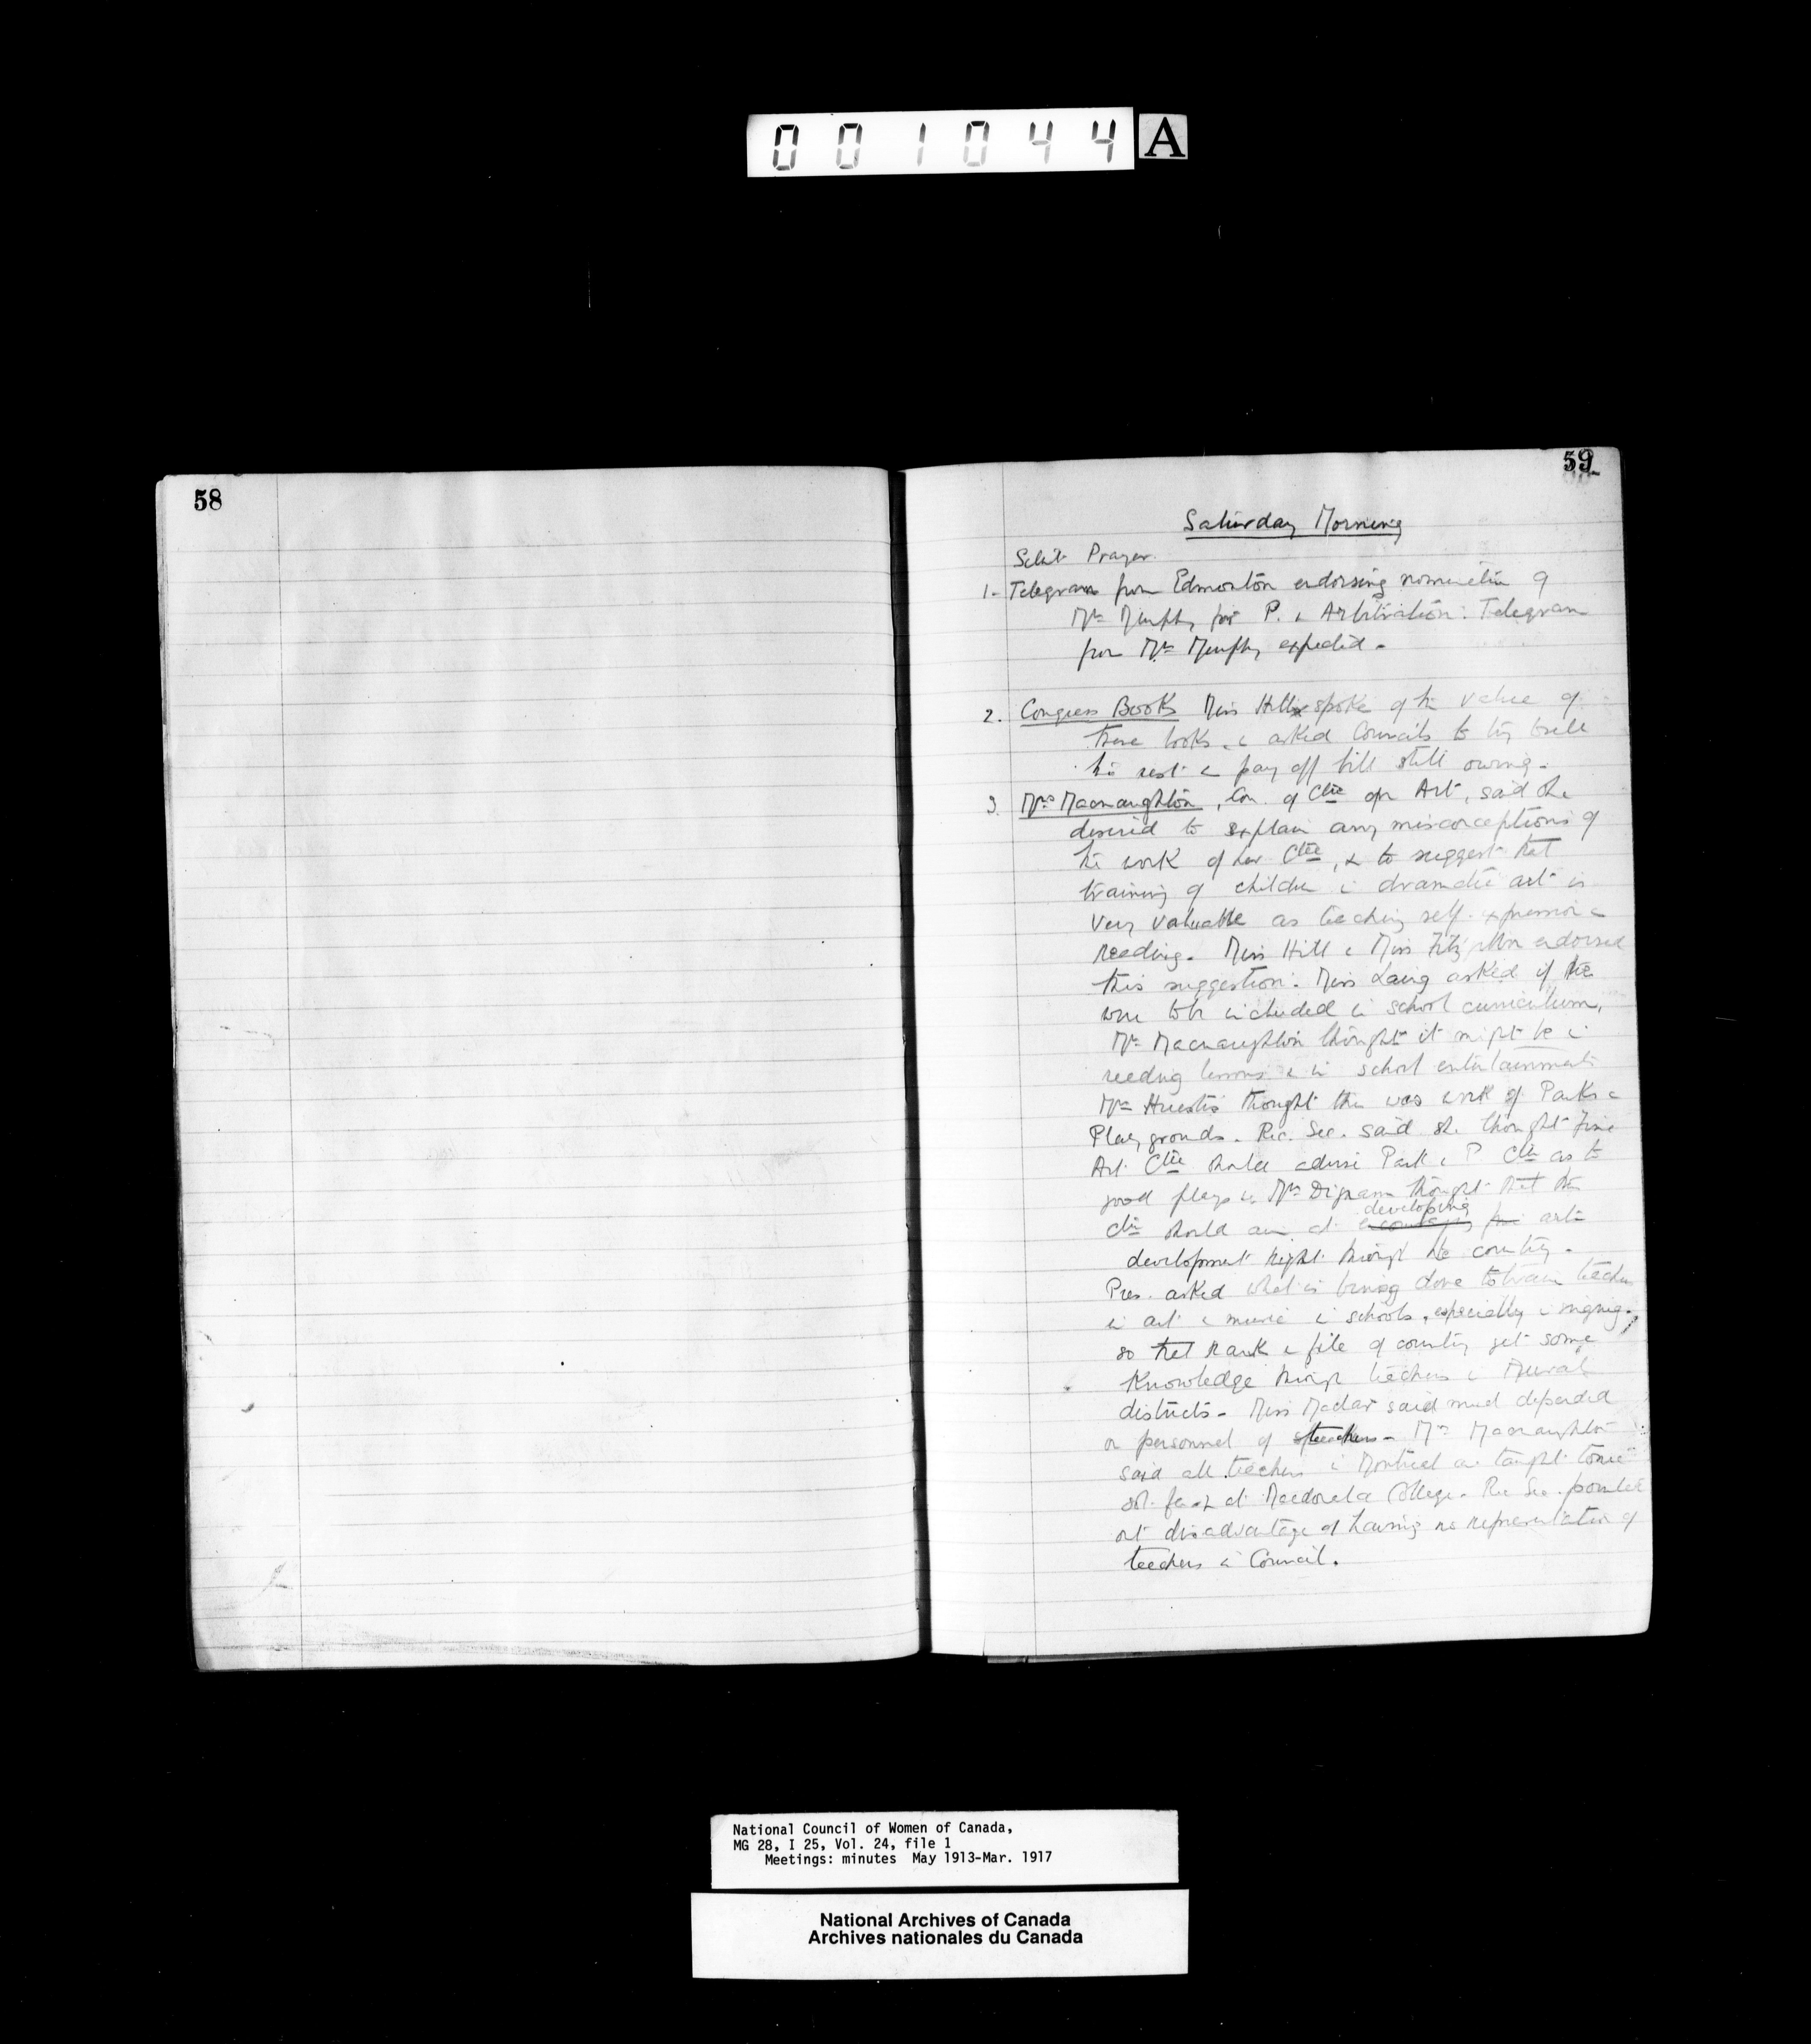 001044 A
58
59
Saturday Morning
Silent Prayer.
1- Telegram from Edmonton endorsing nomination of
Mrs Murphy for P. & Arbitration: Telegram
from Mrs Murphy expected -
2. Congress Books Miss Hill spoke of the value of
these books, & asked Councils to try to sell
the rest & pay off bill still owing -
3. Mrs Macnaughton, Con. of Ctee on Art, said she
desired to explain any misconceptions of
the work of her Ctee, & to suggest that
training of children in dramatic art is
very valuable as teaching self-expression &
reading - Miss Hill & Miss FitzGibbon endorsed
this suggestion: Miss Laing asked if this
were to be included in school curriculum,
Mrs Macnaughton thought it might be in
reading lessons & in school entertainments
Mrs Huestis thought this was work of Parks &
Playgrounds - Rec. Sec. said she thought Fine
Art Ctee should advise Park & P Ctee as to
good plays & Mrs Dignam thought that the
developing
Ctee should aim at encouraging fine art
development right through the country -
Pres. asked what is being done to train teachers
in art & music in schools, especially in singing,
so that rank & file of country get some
knowledge through teachers in Rural
districts - Miss said much depended
on personnel of teachers - Mrs Macnaughton
said all teachers in Montreal are taught tonic
sol-fa at Macdonald College - Rec Sec. pointed
out disadvantage of having no representation of
teachers in Council.
National Council of Women of Canada,
MG 28, I 25, Vol. 24, file 1
Meetings: minutes May 1913-Mar. 1917
National Archives of Canada
Archives nationales du Canada